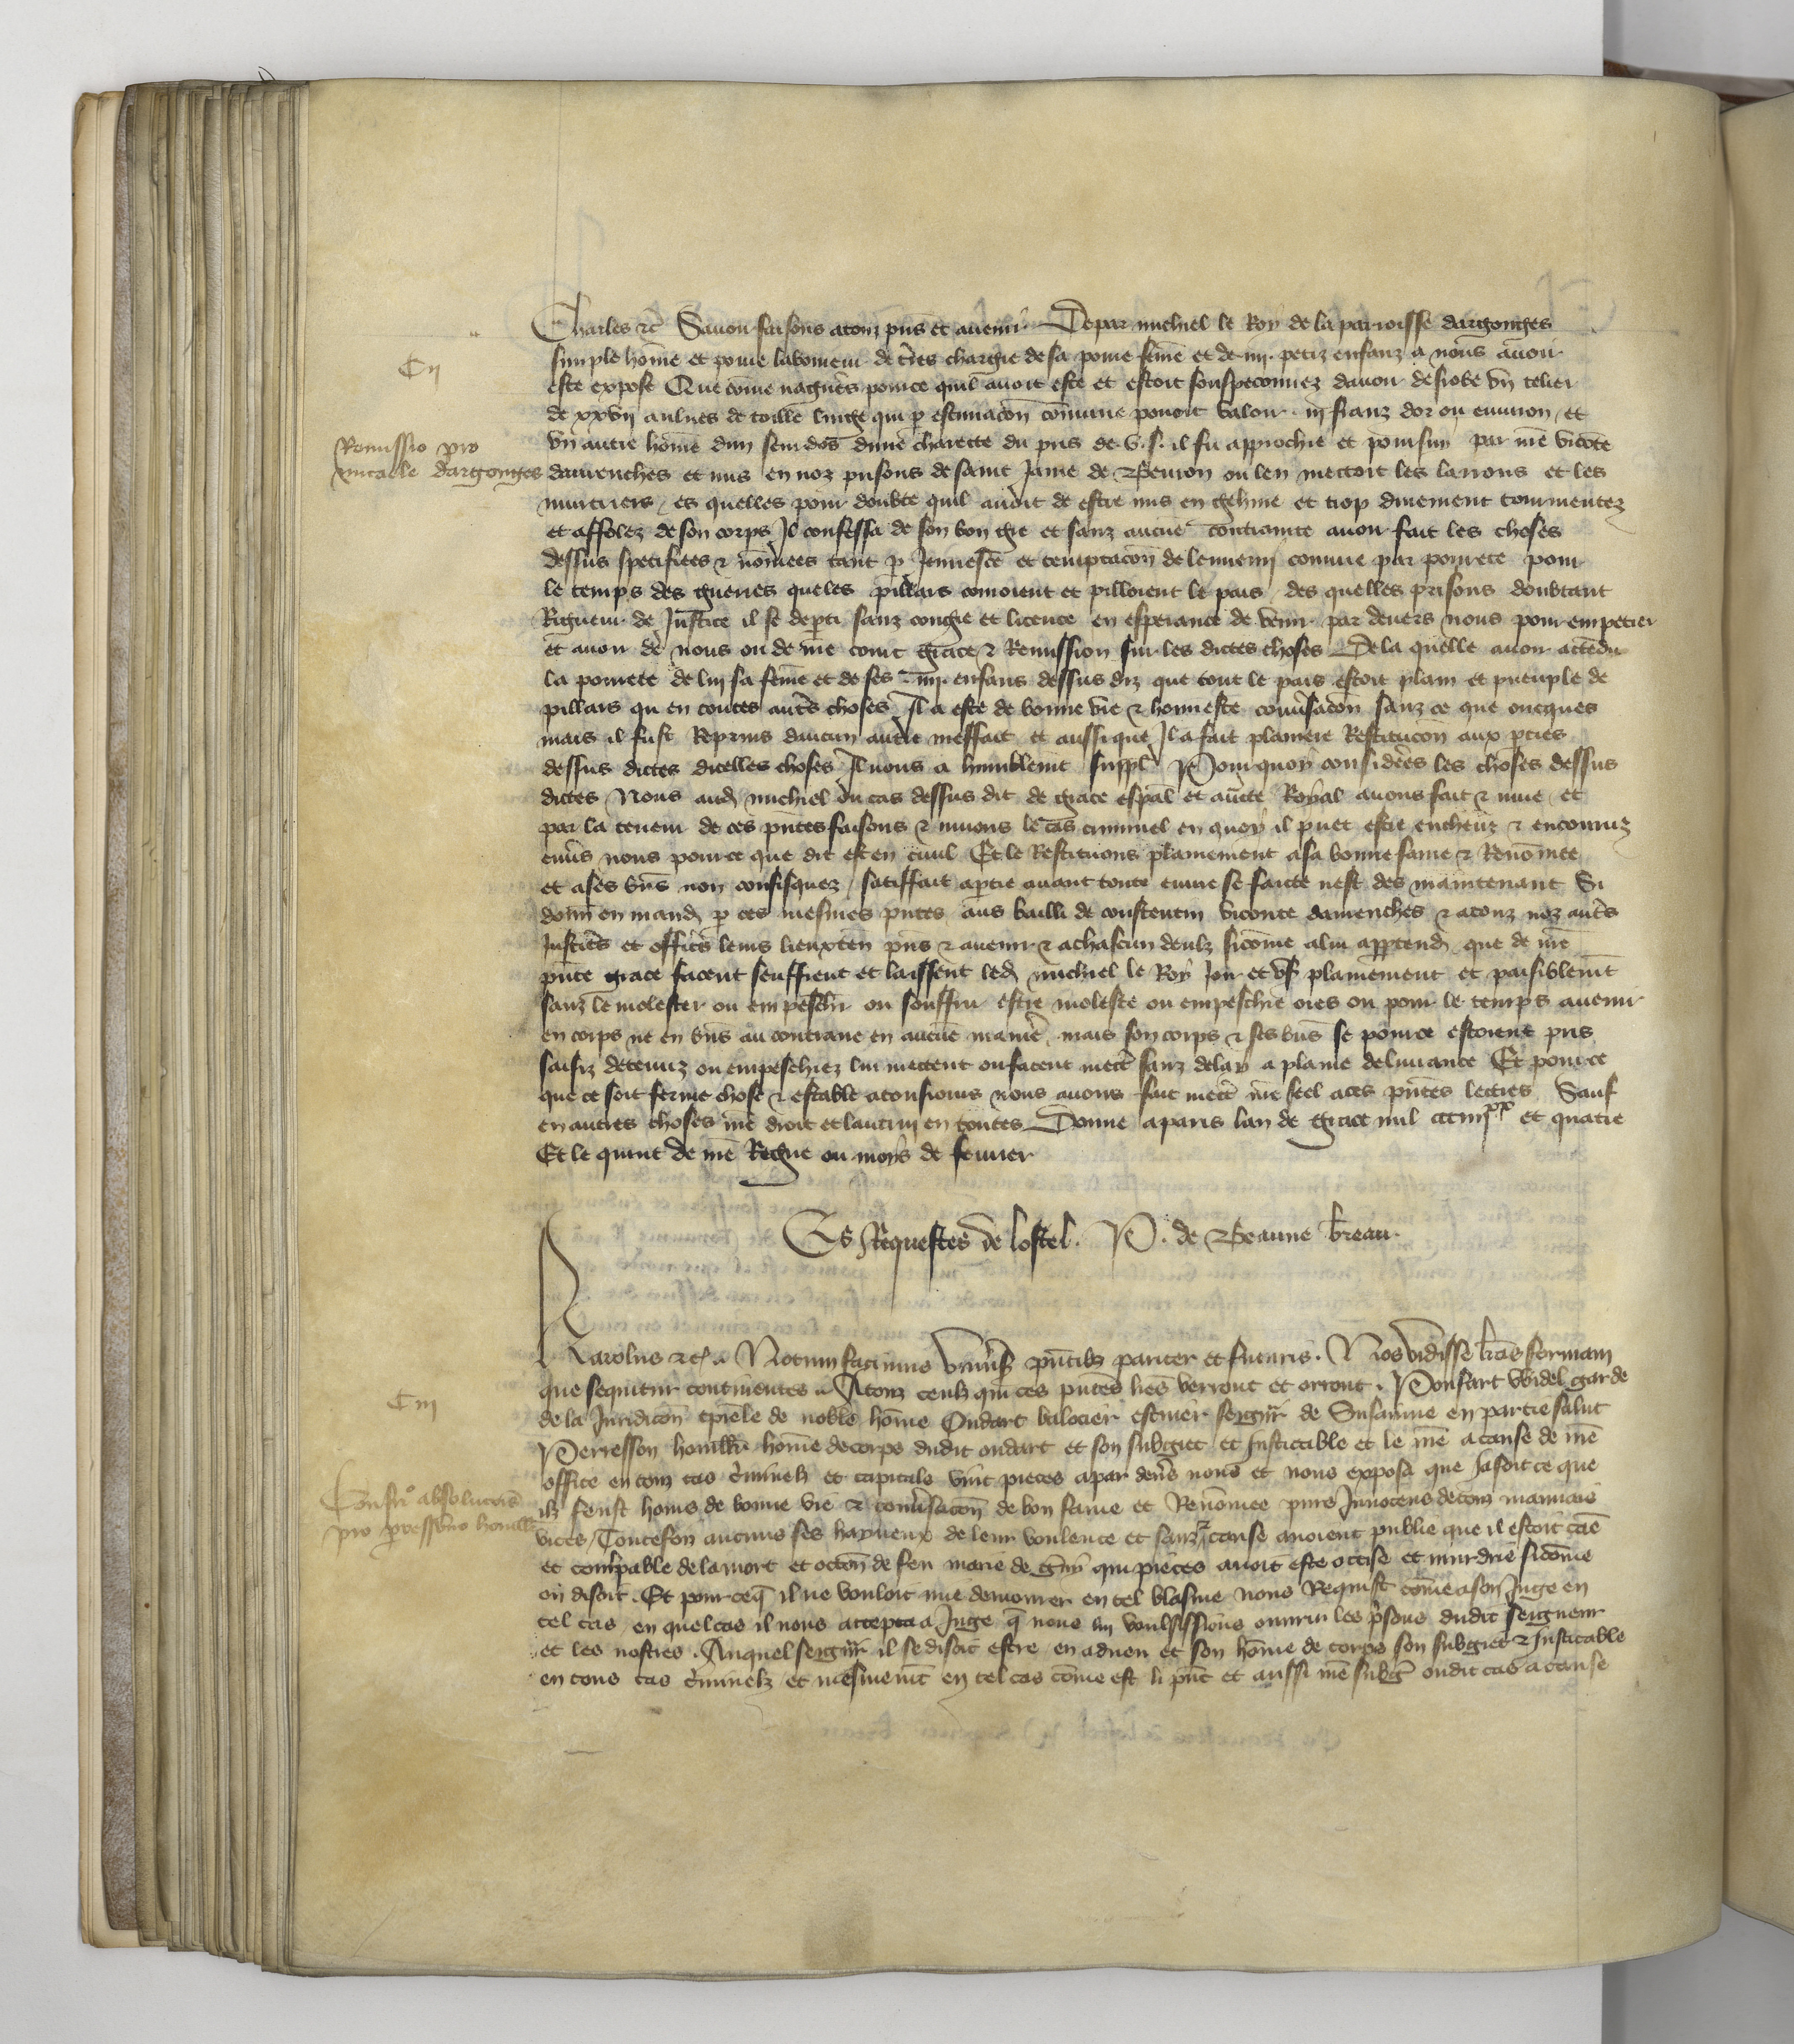 Charles etc Savoir faisons a touz pns et avenir De par michiel le Roy de la parroisse dargonges
Cij
simple home et povre laboureur de tres chargie de sa povre feme et de iiij. petiz enfanz a nous avoir
este expose Que come nagueres pour ce quil avoit este et estoit souspeconnez davoir desrobe un telier
de xxvij aulnes de toille linge qui p estimacon comune povoit valoir iij frans dor ou environ et
Remissio pro
michaele dargonges
un autre home dun seurdos dune charette du pris de v. s. il fu approchie et poursui par nre viconte
davrenches et mis en noz prisons de saint Jame de Beuron ou len mettoit les larrons et les
murtriers es quelles pour doubte quil avoit de estre mis en gehine et trop durement tourmentez
et affolez de son corps Il confessa de son bon gre et sanz aucune contrainte avoir fait les choses
dessus specifiees et nomees tant p Jeunesce et temptacon de lennemi comme par povrete pour
le temps des guerres que les pillars couroient et pilloient le pais des quelles prisons doubtant
Rigueur de Justice il se depti sanz congie et licence en esperance de venir par devers nous pour empetrer
et avoir de nous ou de nre court grace et Remission sur les dictes choses De la quelle avoir actendu
la povrete de lui sa feme et de ses iiij. enfans dessus diz que tout le pais estoit plain et pueuple de
pillars qu en toutes autres choses Il a este de bonne vie et honneste conversacon sanz ce que oncques
mais il fust Reprins daucun autre meffait et aussi que Il a fait planiere Restitucon aux pties
dessus dictes dicelles choses Il nous a humblemt suppl Pour quoy consideres les choses dessus
dictes Nous aud michiel ou cas dessus dit de grace espal et aucte Royal avons fait et mue et
par la teneur de ces pntes faisons et muons le cas criminel en quoy il puet estre encheuz et encouruz
envers nous pour ce que dit est en civil Et le Restituons plainement a sa bonne fame et Renomee
et a ses bns non confisquez satiffait a ptie avant toute euvre se faicte nest des maintenant Si
donn en mand p ces mesmes pntes aus bailli de coustentin viconte davrenches et a touz noz autres
Justiciers et officiers leurs lieuxten pns et avenir et a chascun deulz sicome a lui apptend que de nre
pnte grace facent seuffrent et laissent led michiel le Roy Joir et us plainement et paisiblemt
sanz le molester ou empeschier ou souffrir estre moleste ou empeschie ores ou pour le temps avenir
en corps ne en bns au contraire en aucune maniere mais son corps et ses bns se pour ce estoient pris
saisiz detenuz ou empeschiez lui mettent ou facent mectre sanz delay a plaine delivrance Et pour ce
que ce soit ferme chose et estable a tousiours nous avons fait mectre nre seel a ces pntes lettres Sauf
en autres choses nre droit et lautrui en toutes Donne a paris lan de grace mil ccc iiijxx et quatre
Et le quint de nre Regne ou moys de fevrier
Es Requestes de lostel. P. de Beaune breau
Karolus etc Notum facimus univers pntibz pariter et futuris. Nos vidisse lras formam
Ciij
que sequitur continentes A touz ceulz qui ces pntes lres verront et orront. Ponsart Widel garde
de la Juridicon tpiele de noble home Oudart balocier escuier seignr de Susanne en partie salut
Perresson honullu home de corps dudit oudart et son subgiet et Justicable et le nre a cause de nre
office en tous cas criminelz et capitals vint pieces a par devers nous et nous exposa que Jasoit ce que
Confir absolucois
pro perressono honull
ilz feust homs de bonne vie et conversacon de bon fame et Renomee purs Innocens de tous mauvais
vices Toutefoiz aucuns ses hayneux de leur voulente et sanz cause avoient publie que il estoit cause
et coulpable de la mort et occon de feu marie de gny qui pieces avoit este occise et murdrie sicome
on disoit. Et pour ceq il ne vouloit mie demourer en tel blasme nous Requist come a son Juge en
tel cas en quel cas il nous accepta a Juge q nous lui voulsissions ouvrir les prisons dudit seigneur
et les nostres. Auquel seignr il se disoit estre en adveu et son home de corps son subgiet et Justicable
en tous cas criminelz et mesmemt en tel cas come est li pnt et aussi nre subg oudit cas a cause